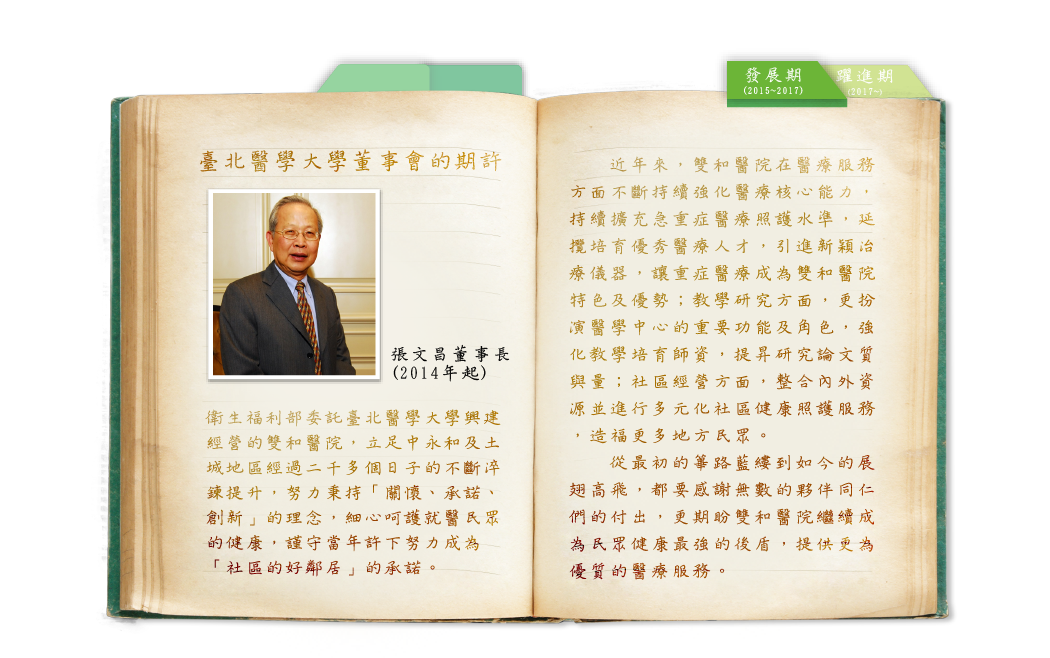 發展期
(2015~2017)
躍進期
(2017~)
臺北醫學大學董事會的期許
張文昌董事長
(2014年起)
衛生福利部委託臺北醫學大學興建
經營的雙和醫院，立足中永和及土
城地區經過二千多個日子的不斷淬
鍊提升，努力秉持「關懷、承諾、
創新」的理念，細心呵護就醫民眾
的健康，謹守當年許下努力成為
「社區的好鄰居」的承諾。
近年來，雙和醫院在醫療服務
方面不斷持續強化醫療核心能力，
持續擴充急重症醫療照護水準，延
攬培育優秀醫療人才，引進新穎治
療儀器，讓重症醫療成為雙和醫院
特色及優勢；教學研究方面，更扮
演醫學中心的重要功能及角色，強
化教學培育師資，提昇研究論文質
與量；社區經營方面，整合內外資
源並進行多元化社區健康照護服務
，造福更多地方民眾。
從最初的篳路藍縷到如今的展
翅高飛，都要感謝無數的夥伴同仁
們的付出，更期盼雙和醫院繼續成
為民眾健康最強的後盾，提供更為
優質的醫療服務。